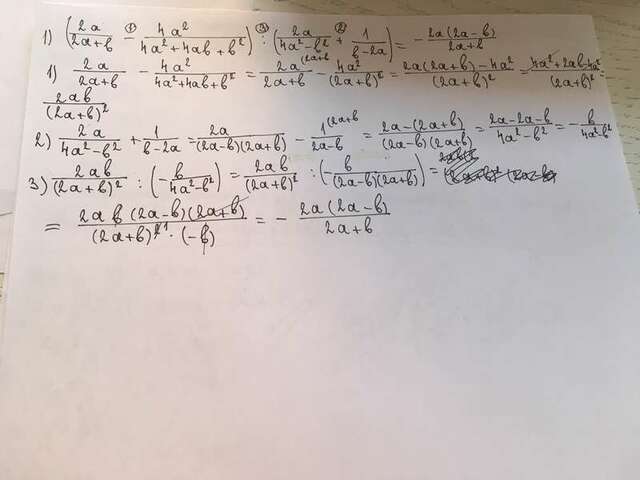 1) (2a/(2a+b) - 4a²/(4a²+4ab+b²)) : (2a/(4a²-b²) + 1/(b-2a)) = - 2a(2a-b)/(2a+b)
1) 2a/(2a+b) - 4a²/(4a²+4ab+b²) = 2a/(2a+b) - 4a²/(2a+b)² = (2a(2a+b)-4a²)/(2a+b)² = (4a²+2ab-4a²)/(2a+b)² =
2ab/(2a+b)²
2) 2a/(4a²-b²) + 1/(b-2a) = 2a/((2a-b)(2a+b)) - 1/(2a-b) = (2a-(2a+b))/((2a-b)(2a+b)) = (2a-2a-b)/(4a²-b²) = - b/(4a²-b²)
3) 2ab/(2a+b)² : (- b/(4a²-b²)) = 2ab/(2a+b)² : (- b/((2a-b)(2a+b))) =
= 2ab(2a-b)(2a+b)/((2a+b)² · (-b)) = - 2a(2a-b)/(2a+b)